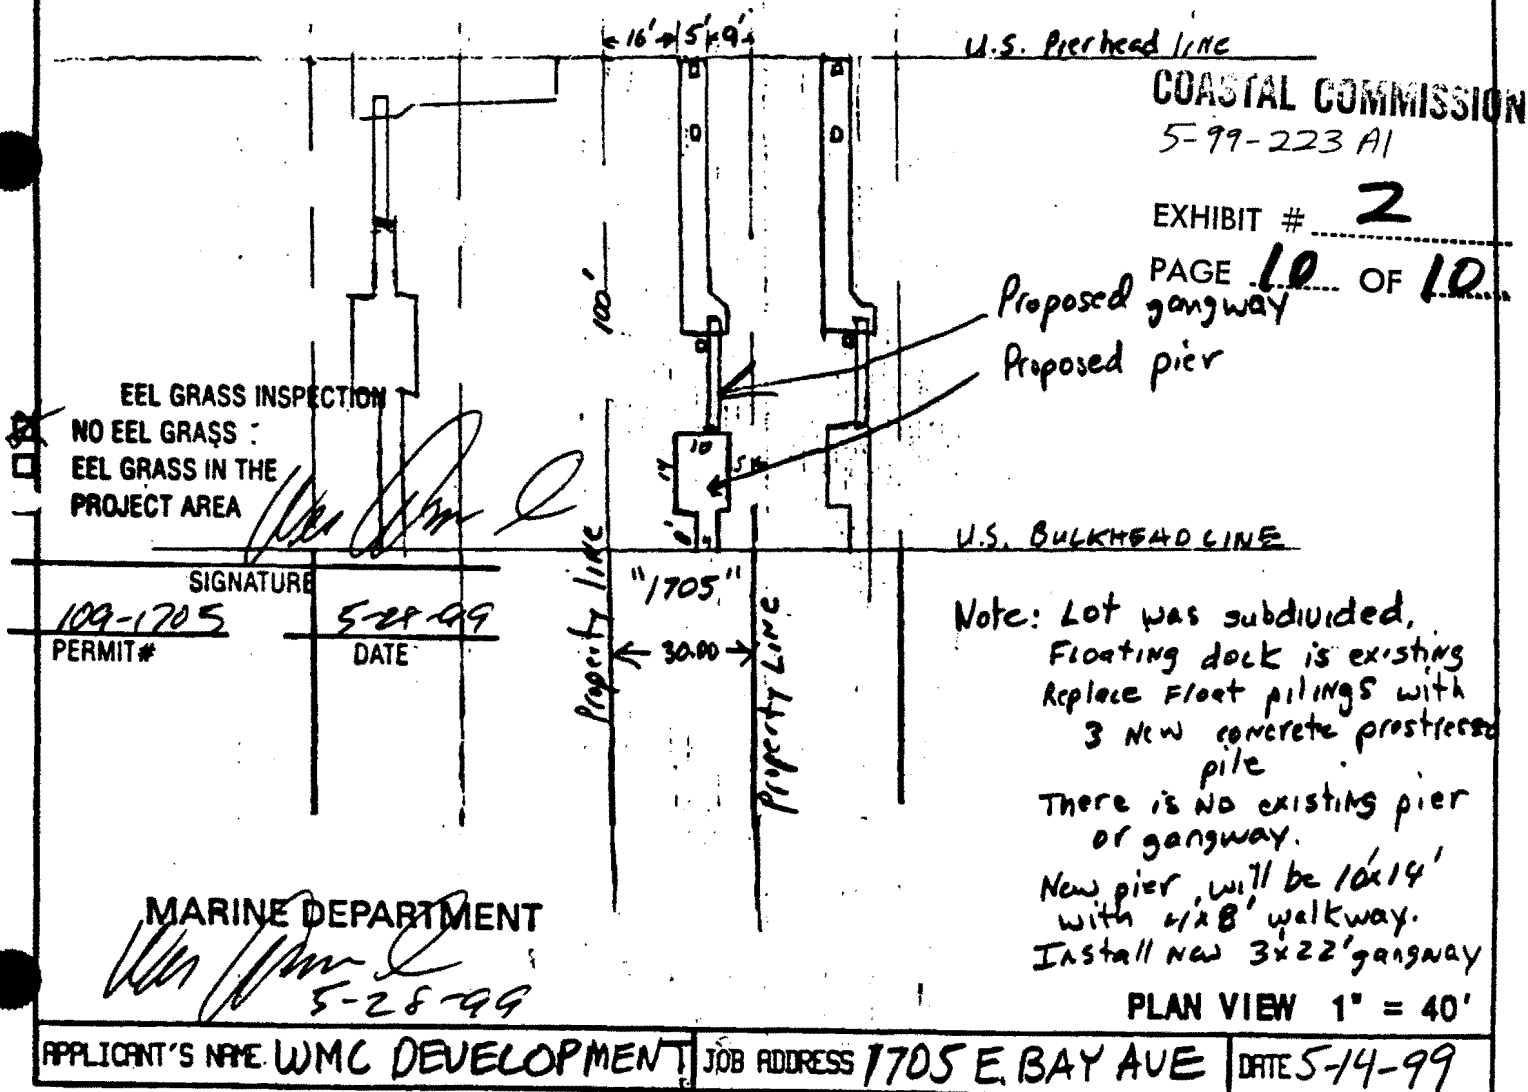 16' 5' 9'
U.S. Pierhead line
COASTAL COMMISSION
5-99-223 A1
EXHIBIT # 2
PAGE 10 OF 10
100'
Proposed gangway
Proposed pier
EEL GRASS INSPECTION
NO EEL GRASS
EEL GRASS IN THE
PROJECT AREA
10
14
8'
U.S. BULKHEAD LINE
SIGNATURE
109-1705
5-28-99
PERMIT#
DATE
"1705"
Property line
30.00
Property LINE
Note: Lot was subdivided,
Floating dock is existing
Replace Float pilings with
3 New concrete prestressed
pile
There is No existing pier
or gangway.
New pier will be 10'x14'
with 4'x8' walkway.
Install New 3'x22' gangway
MARINE DEPARTMENT
5-28-99
PLAN VIEW 1" = 40'
APPLICANT'S NAME WMC DEVELOPMENT JOB ADDRESS 1705 E. BAY AVE DATE 5-14-99